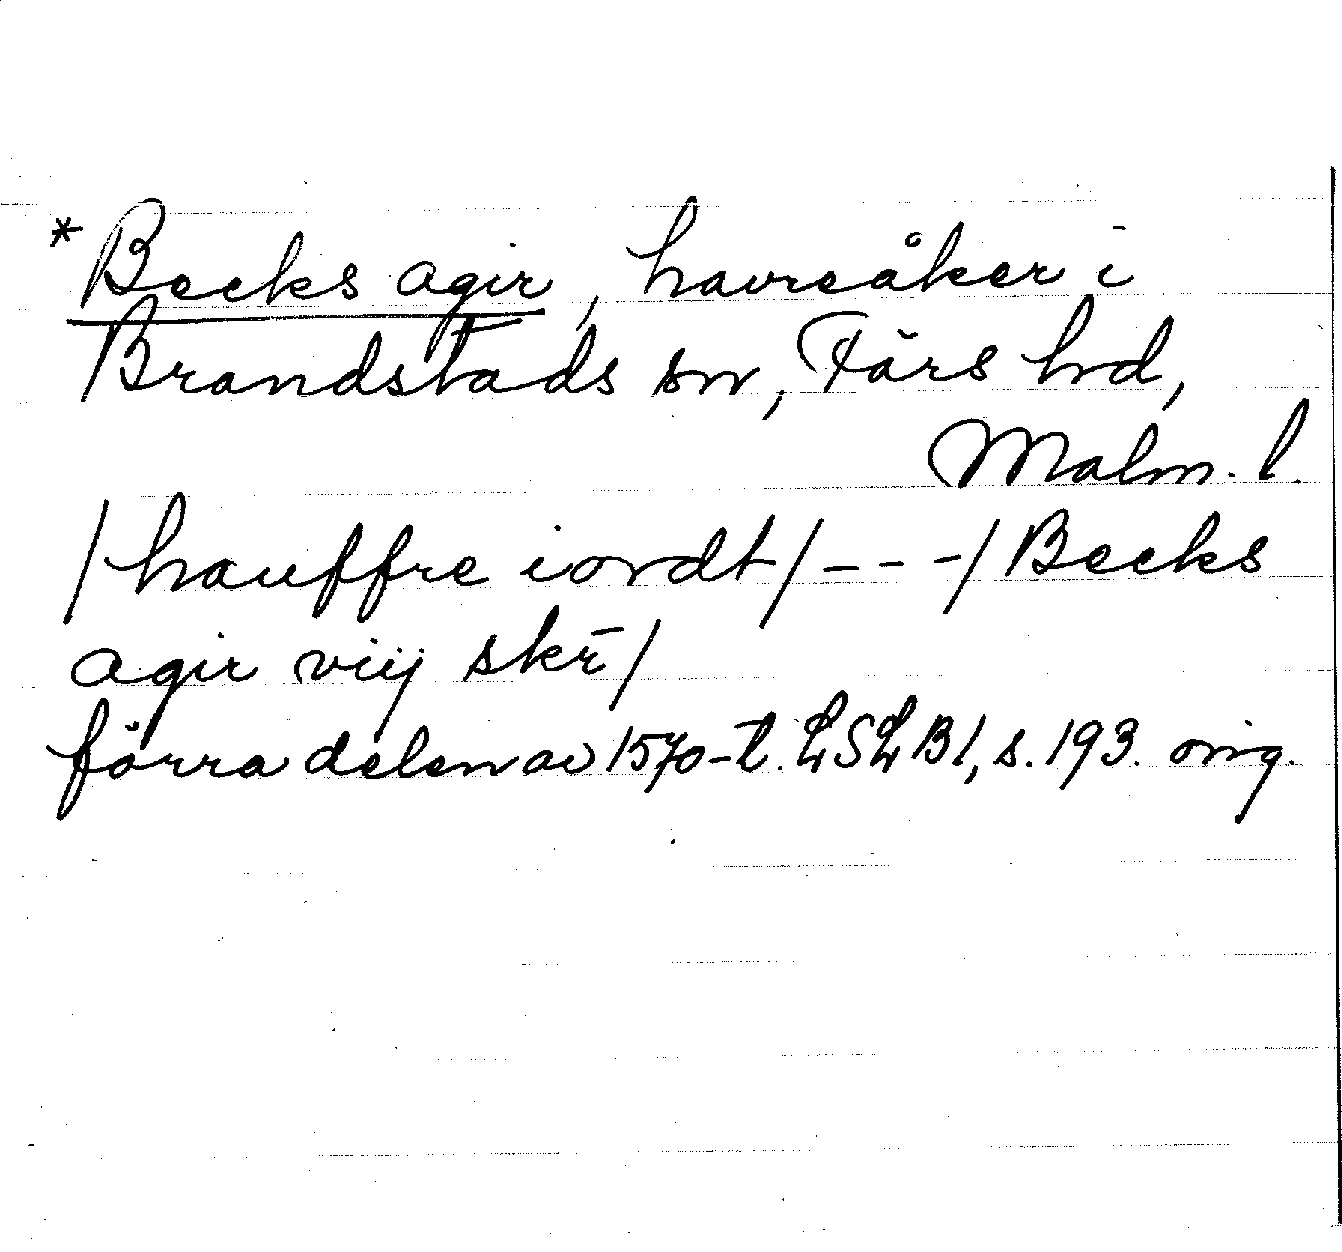 *Becks agir, havreåker i
Brandstads sn, Färs hd,
Malm. l.
/hauffre iordt/---/Becks
agir viij skr̄/
förra delen av 1570-t. LSLB1, s. 193. orig.